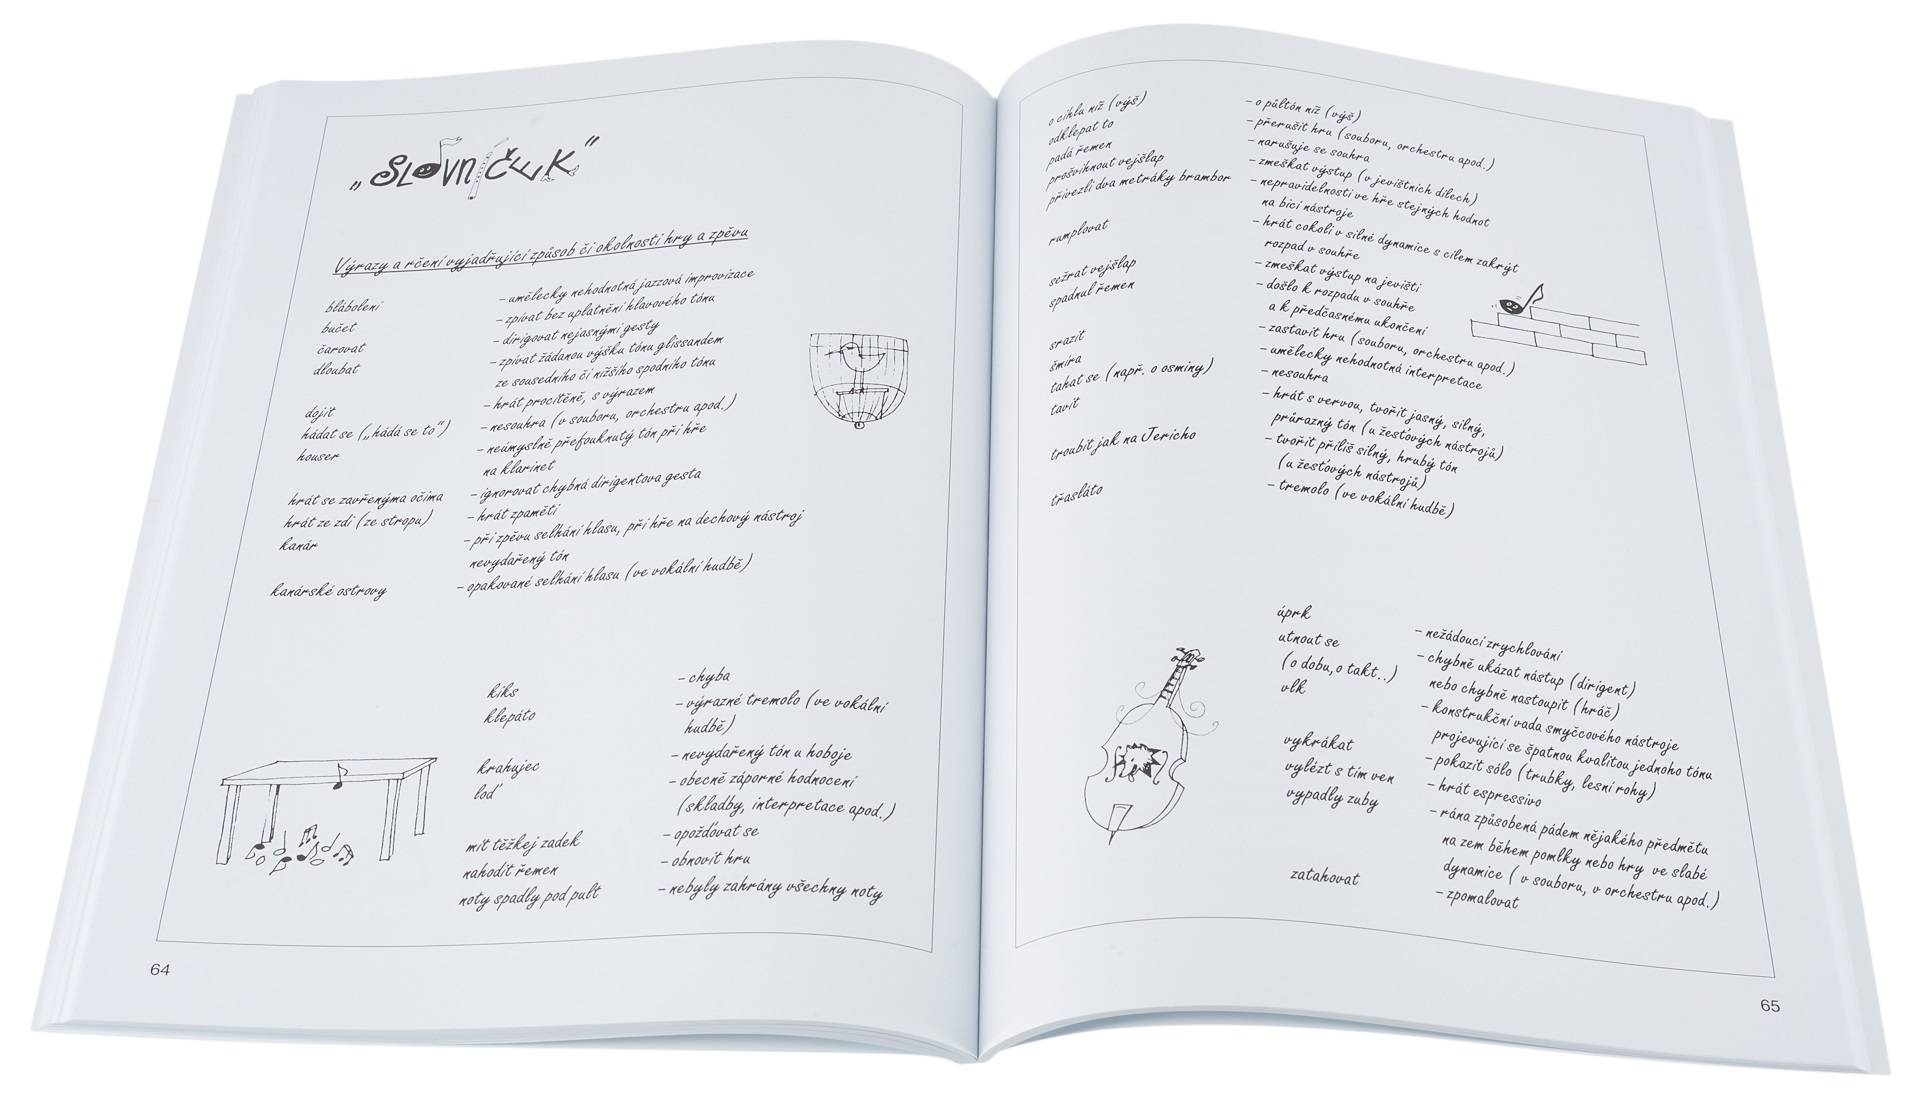 „SLOVNÍČEK“
Výrazy a rčení vyjadřující způsob či okolnosti hry a zpěvu
blábolení – umělecky nehodnotná jazzová improvizace
bučet – zpívat bez uplatnění hlavového tónu
čarovat – dirigovat nejasnými gesty
dloubat – zpívat žádanou výšku tónu glissandem
ze sousedního či nižšího spodního tónu
dojit – hrát procítěně, s výrazem
hádat se („hádá se to“) – nesouhra (v souboru, orchestru apod.)
houser – neúmyslně přefouknutý tón při hře
na klarinet
hrát se zavřenýma očima – ignorovat chybná dirigentova gesta
hrát ze zdi (ze stropu) – hrát zpaměti
kanár – při zpěvu selhání hlasu, při hře na dechový nástroj
nevydařený tón
kanárské ostrovy – opakované selhání hlasu (ve vokální hudbě)
kiks – chyba
klepáto – výrazné tremolo (ve vokální
hudbě)
krahujec – nevydařený tón u hoboje
loď – obecně záporné hodnocení
(skladby, interpretace apod.)
mít těžkej zadek – opožďovat se
nahodit řemen – obnovit hru
noty spadly pod pult – nebyly zahrány všechny noty
64
o cihlu níž (výš) – o půltón níž (výš)
odklepat to – přerušit hru (souboru, orchestru apod.)
padá řemen – narušuje se souhra
prošvihnout vejšlap – zmeškat výstup (v jevištních dílech)
přivezli dva metráky brambor – nepravidelnosti ve hře stejných hodnot
na bicí nástroje
rumplovat – hrát cokoli v silné dynamice s cílem zakrýt
rozpad v souhře
sežrat vejšlap – zmeškat výstup na jevišti
spadnul řemen – došlo k rozpadu v souhře
a k předčasnému ukončení
srazit – zastavit hru (souboru, orchestru apod.)
šmíra – umělecky nehodnotná interpretace
tahat se (např. o osminy) – nesouhra
tavit – hrát s vervou, tvořit jasný, silný,
průrazný tón (u žesťových nástrojů)
troubit jak na Jericho – tvořit příliš silný, hrubý tón
(u žesťových nástrojů)
třasláto – tremolo (ve vokální hudbě)
úprk – nežádoucí zrychlování
utnout se – chybně ukázat nástup (dirigent)
(o dobu, o takt..) nebo chybně nastoupit (hráč)
vlk – konstrukční vada smyčcového nástroje
projevující se špatnou kvalitou jednoho tónu
vykrákat – pokazit sólo (trubky, lesní rohy)
vylézt s tím ven – hrát espressivo
vypadly zuby – rána způsobená pádem nějakého předmětu
na zem během pomlky nebo hry ve slabé
dynamice (v souboru, v orchestru apod.)
zatahovat – zpomalovat
65